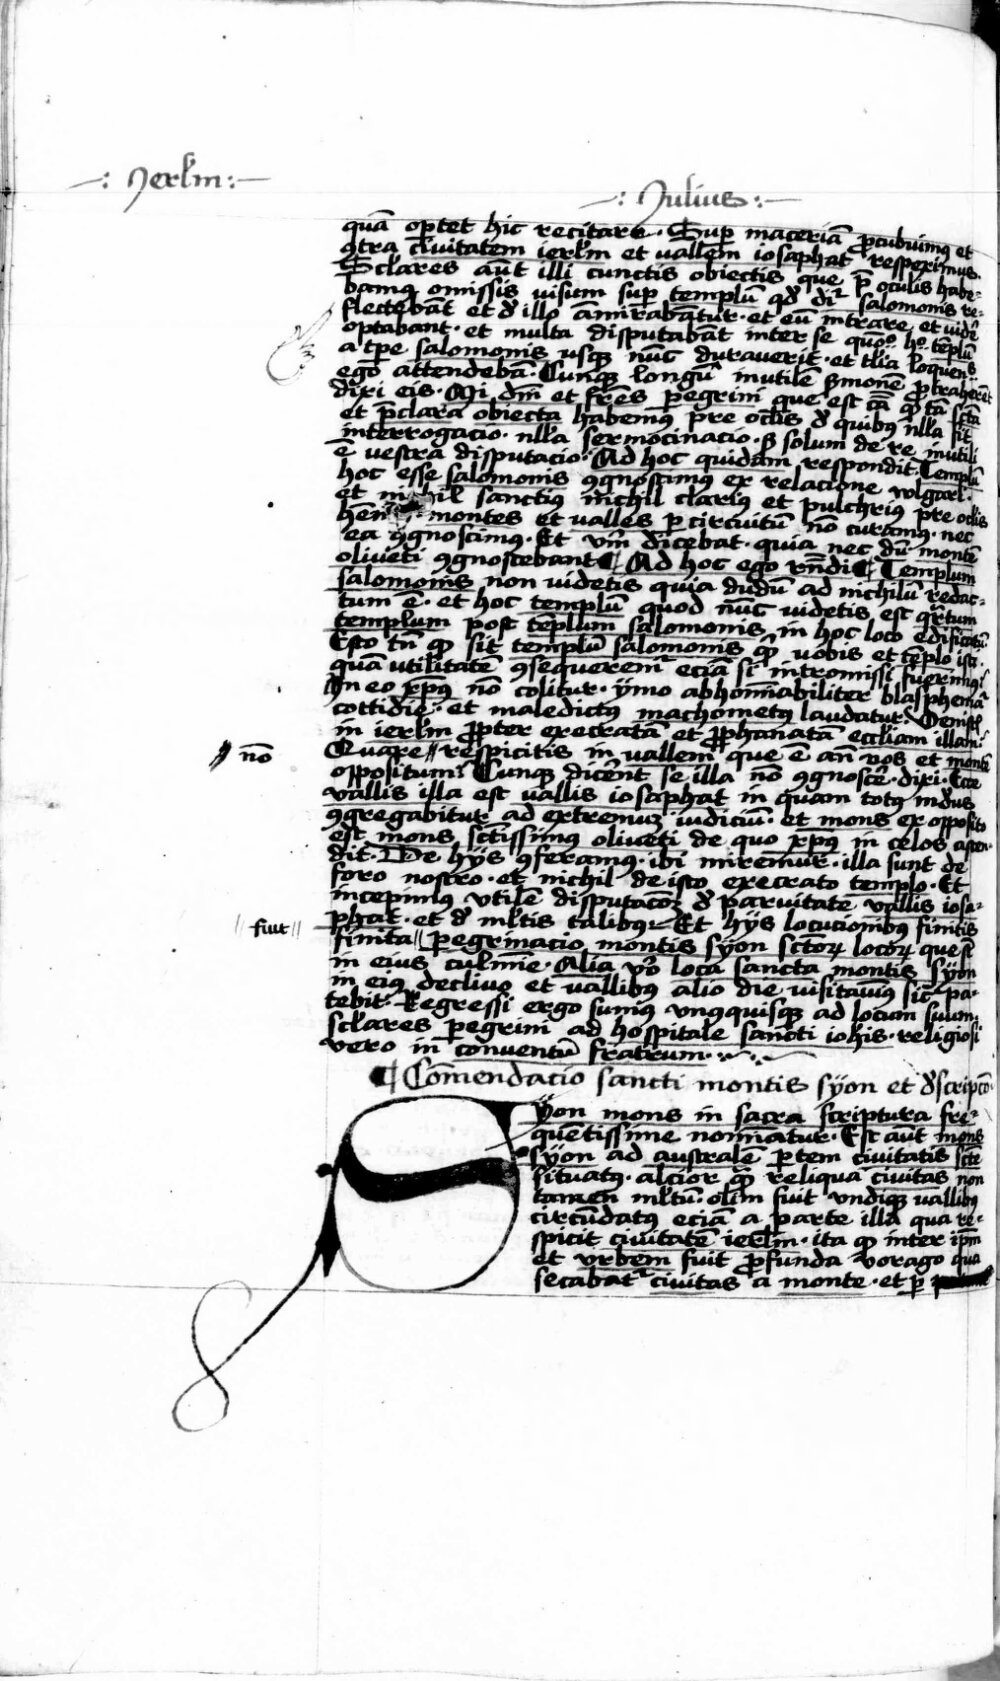 -: Jerl̄m :-
-: Julius :-
quā oportet hic recitare. Sup̄ maceriā p̄cubuimꝰ et
ꝯtra civitatem ierl̄m et vallem iosaphat respeximus.
Sclares aūt illi cunctis obiectis que p̄ oculis habe-
bamꝰ omissis visum sup̄ templū qd̄ dr̄ salomonis re-
flectebāt et d̄ illo āmirabātur. et eū intrare et vidē
optabant. et multa disputabāt inter se quō hͦ tēplū
a tp̄e salomonis usqꝫ nūc duraverit. et tl̄ia loquens
ego attendebā. Cunqꝫ longū inutilē ẜmonē p̄traherēt
dixi eis. Mi dn̄i et fr̄es peregrini que est cā ꝙ tā sctā
et p̄clara obiecta habemꝰ pre oc̄lis d̄ quibꝰ nl̄la sit
interrogacio. nl̄la sermocinacio. ẜ solum de re inutili
ē vestra disputacio. Ad hoc quidam respondit. Templū
hoc esse salomonis ꝯgnoscimꝰ ex relacione vulgari.
et nichil sanctiꝰ nichil clariꝰ et pulchriꝰ pre oc̄lis
hēmꝰ. montes et valles p circuitū nō curamꝰ. nec
ea ꝯgnoscimꝰ. Et vm̄ dicebat. quia nec dū montē
oliveti ꝯgnoscebant ¶ Ad hoc ego rn̄di ¶ Templum
salomonis non videtis quia dudū ad nichilū redac-
tum ē. et hoc templū quod nūc videtis est qr̄tum
templum post tēplum salomonis in hoc loco edificatū.
Esto tn̄ ꝙ sit templū salomonis ꝙ vobis et tēplo isti.
quā utilitatē ꝯsequeremͬ eciā si intromissi fuerimꝰ.
In eo xp̄s nō colitur. ymo abhominabiliter blasphemāͬ
cottidie. et maledictꝰ machometꝰ laudatur. Venistis
in ierl̄m p̄pter execratā et p̄phanatā eccl̄iam illam.
nō
Quare // respicitis in vallem que ē an̄ vos et montē
oppositum. Cunqꝫ dicēnt se illa nō ꝯgnoscē. dixi. Ecce
vallis illa est vallis iosaphat in quam totꝰ mūdus
ꝯgregabitur ad extremuꝫ iudiciū. et mons ex opposito
est mons sctissimꝰ oliveti de quo xp̄s in celos ascen-
dit. De hijs ꝯferamꝰ. ibi miremur. illa sunt de
foro nostro. et nichil de isto execrato templo. Et
incepimꝰ utilē disputacōꝫ d̄ parvitate vallis iosa-
phat. et d̄ ml̄tis talibꝰ. Et hijs locucionibꝰ finitis
// fuit //
finita // peregrinacio montis syon sctōꝝ locoꝝ que st̄
in eius culmīe. Alia v̄o loca sancta montis syon
in eiꝰ declivo et vallibꝰ alio die visitavimꝰ sic̄ pa-
tebit. Regressi ergo sumꝰ unꝰquisqꝫ ad locum suum.
sclares peregrini ad hospitale sancti ioh̄is. religiosi
vero in conventū fratrum.
¶ Comendacio sancti montis syon et d̄scripcō.
Syon mons in sacra scriptura fre-
quētissime nominatur. Est aūt mons
syon ad australē ptem civitatis scte
situatꝰ. alcior ꝙ̄ reliqua civitas non
tamen ml̄tū. olim fuit undiqꝫ vallibꝰ
circūdatꝰ eciā a parte illa qua re-
spicit civitatē ierl̄m. ita ꝙ inter ip̄m
et urbem fuit p̄funda vorago qua
secabatͬ civitas a monte. et p